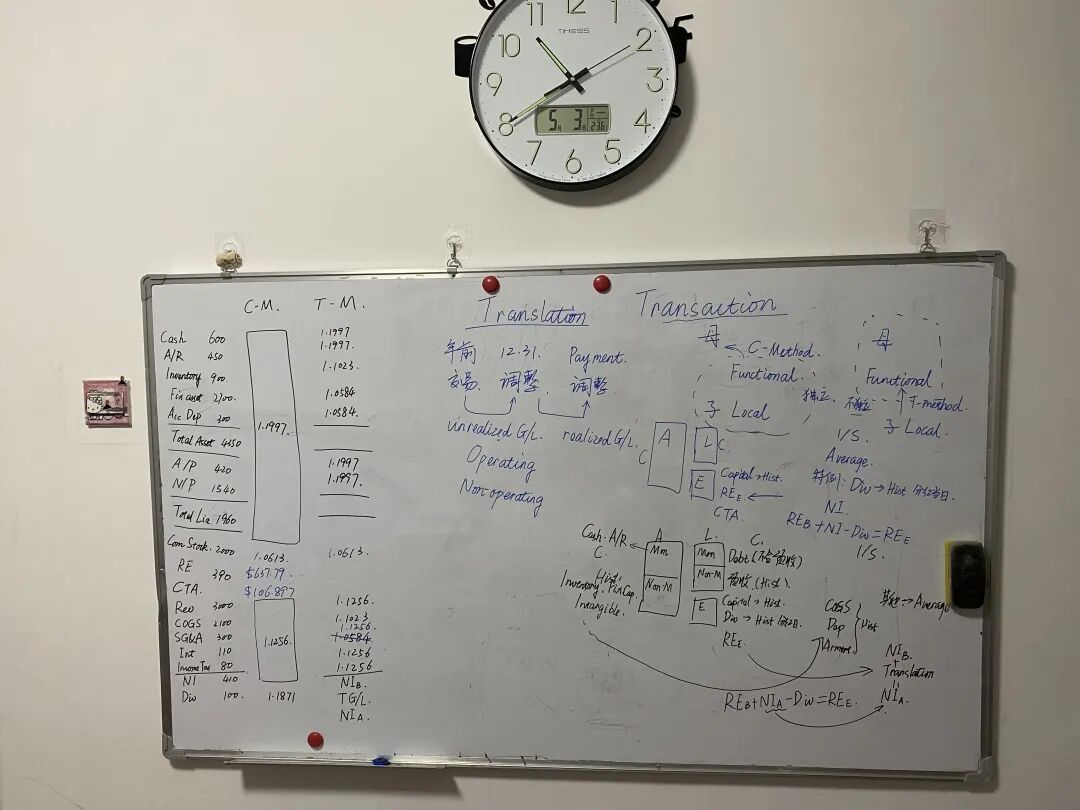 11 12 1
10 2
TIMESS
9 3
8 4
7 6 5
5月 3日 23.6
C-M. T-M.
Cash 600 1.1997
A/R 450 1.1997
Inventory 900 1.1023
Fix asset 2700 1.0584
Acc Dep 300 1.0584
Total Asset 4350
1.1997
A/P 420 1.1997
N/P 1540 1.1997
Total Lia 1960
Com Stock 2000 1.0613 1.0613
RE 390 $637.79
CTA. $106.897
Rev 3000 1.1256
COGS 2100 1.1023
1.1256
SG&A 300 1.0584
Int 110 1.1256
Income Tax 80 1.1256
1.1256
NI 410 NIB.
Div 100. 1.1871 TG/L.
NIA.
Translation
年前 12.31. Payment.
交易 调整 调整
unrealized G/L. realized G/L.
Operating
Non operating
Transaction
母 C-Method.
Functional.
独立.
子 Local
C A L C.
E Capital→Hist.
REE.
CTA.
母
Functional
不独立 T-method.
子 Local.
I/S.
Average.
特例: Div → Hist 分红当日.
NI.
REB+NI-Div=REE.
I/S.
Cash. A/R A L. C.
C. Mm Mm Debt
Hist. Non-M Non-M (Hist).
Inventory. Fix
Intangible. E Capital → Hist.
Div → Hist 分红日.
REE.
其他 → Average
COGS
Dep Hist
Armort.
NIB
+
Translation
=
NIA.
REB+NIA-Div=REE.